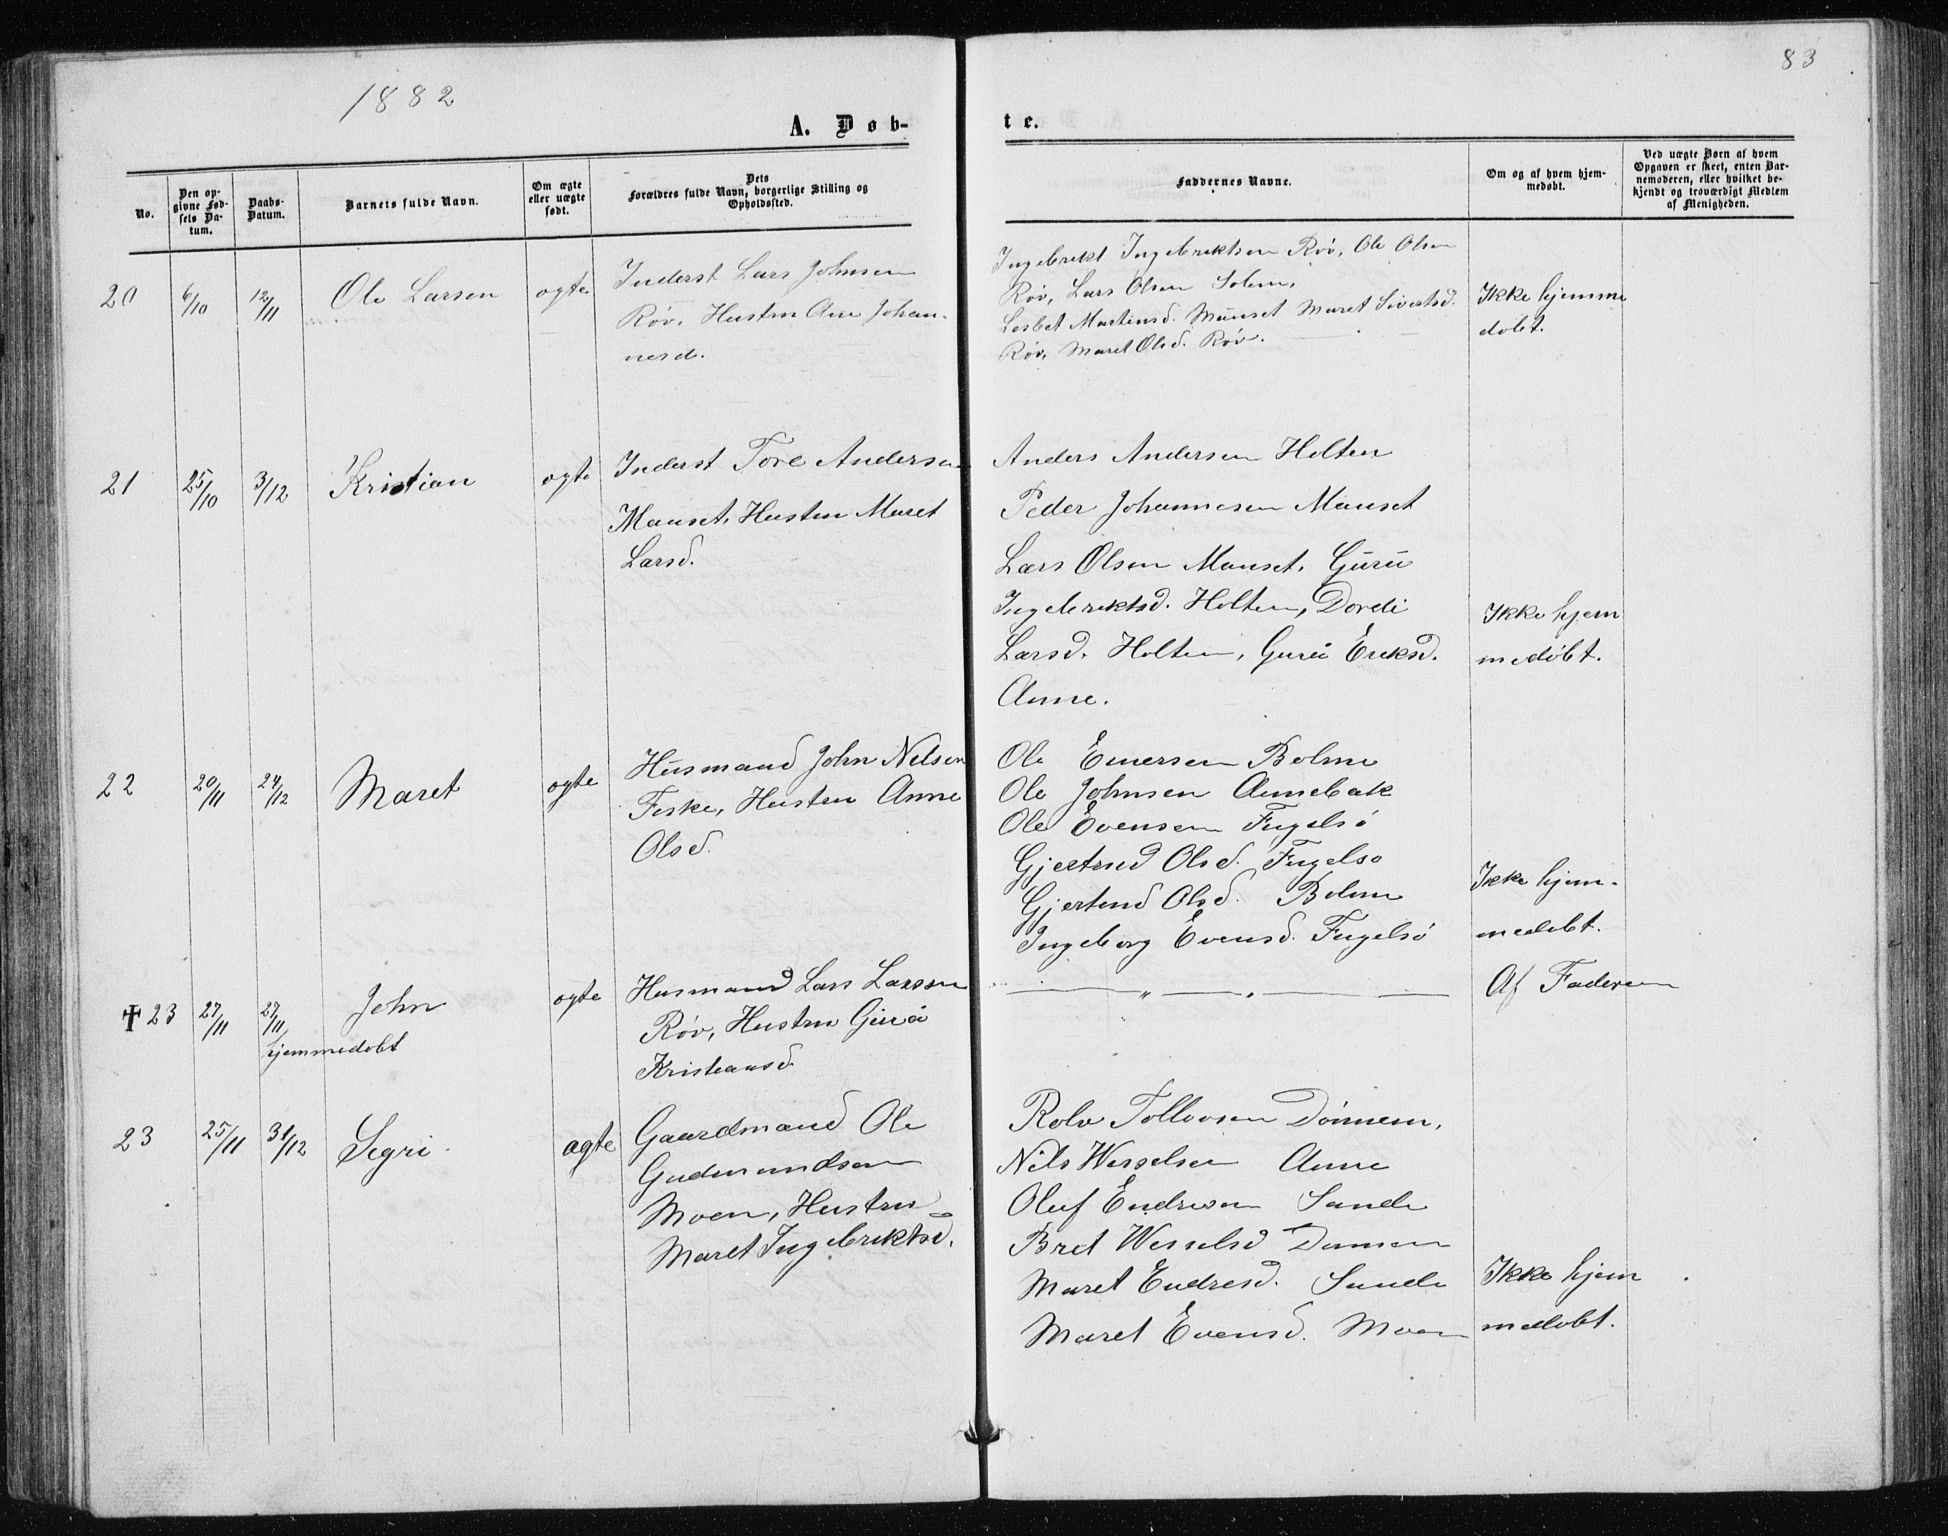 1882
83
A. Døb-
te.
No.
Den op-
givne Fød-
sels Da-
tum.
Daabs-
Datum.
Barnets fulde Navn.
Om ægte
eller uægte
født.
Dets
Forældres fulde Navn, borgerlige Stilling og
Opholdssted.
Faddernes Navne.
Om og af hvem hjem-
medøbt.
Ved uægte Børn af hvem
Opgaven er skeet, enten Bar-
nemoderen, eller hvilket be-
kjendt og troværdigt Medlem
af Menigheden.
20
6/10
12/11
Ole Larsen
ogte
Inderst Lars Johnsen
Røv, Hustru Ane Johan-
nesd.
Ingebrikt Ingebriktsen Røv, Ole Olsen
Røv, Lars Olsen Solem,
Lisbet Martinsd. Mauset Maret Sivertsd.
Røv, Maret Olsd. Røv.
Ikke hjemme
døbt.
21
25/10
3/12
Kristian
ogte
Inderst Tore Andersen
Mauset, Hustru Maret
Larsd.
Anders Andersen Holten
Peder Johannesen Mauset
Lars Olsen Mauset, Guru
Ingebriktsd. Holten, Dordi
Larsd. Holten, Guru Eriksd.
Aune.
Ikke hjem
medøbt.
22
20/11
24/12
Maret
ogte
Husmand John Nilsen
Fiske, Hustru Anne
Olsd.
Ole Einersen Bolme
Ole Johnsen Aunebak
Ole Evensen Fugelsø
Gjertrud Olsd. Fugelso
Gjertrud Olsd. Bolme
Ingeborg Evensd. Fugelsø
Ikke hjem-
medobt.
† 23
27/11
27/11
hjemmedobt
John
ogte
Husmand Lars Larsen
Røv, Hustru Guru
Kristiansd.
— „ — „ —
Af Faderen
23
25/11
31/12
Segri
ogte
Gaardmand Ole
Gudmundsen
Moen, Hustru
Maret Ingebriktsd.
Rolv Tollevsen Dønnem,
Nils Wesselsen Aune
Oluf Endresen Sande
Bret Wesselsd Dønnem
Maret Endresd. Sande
Maret Evensd. Moen
Ikke hjem
medobt.